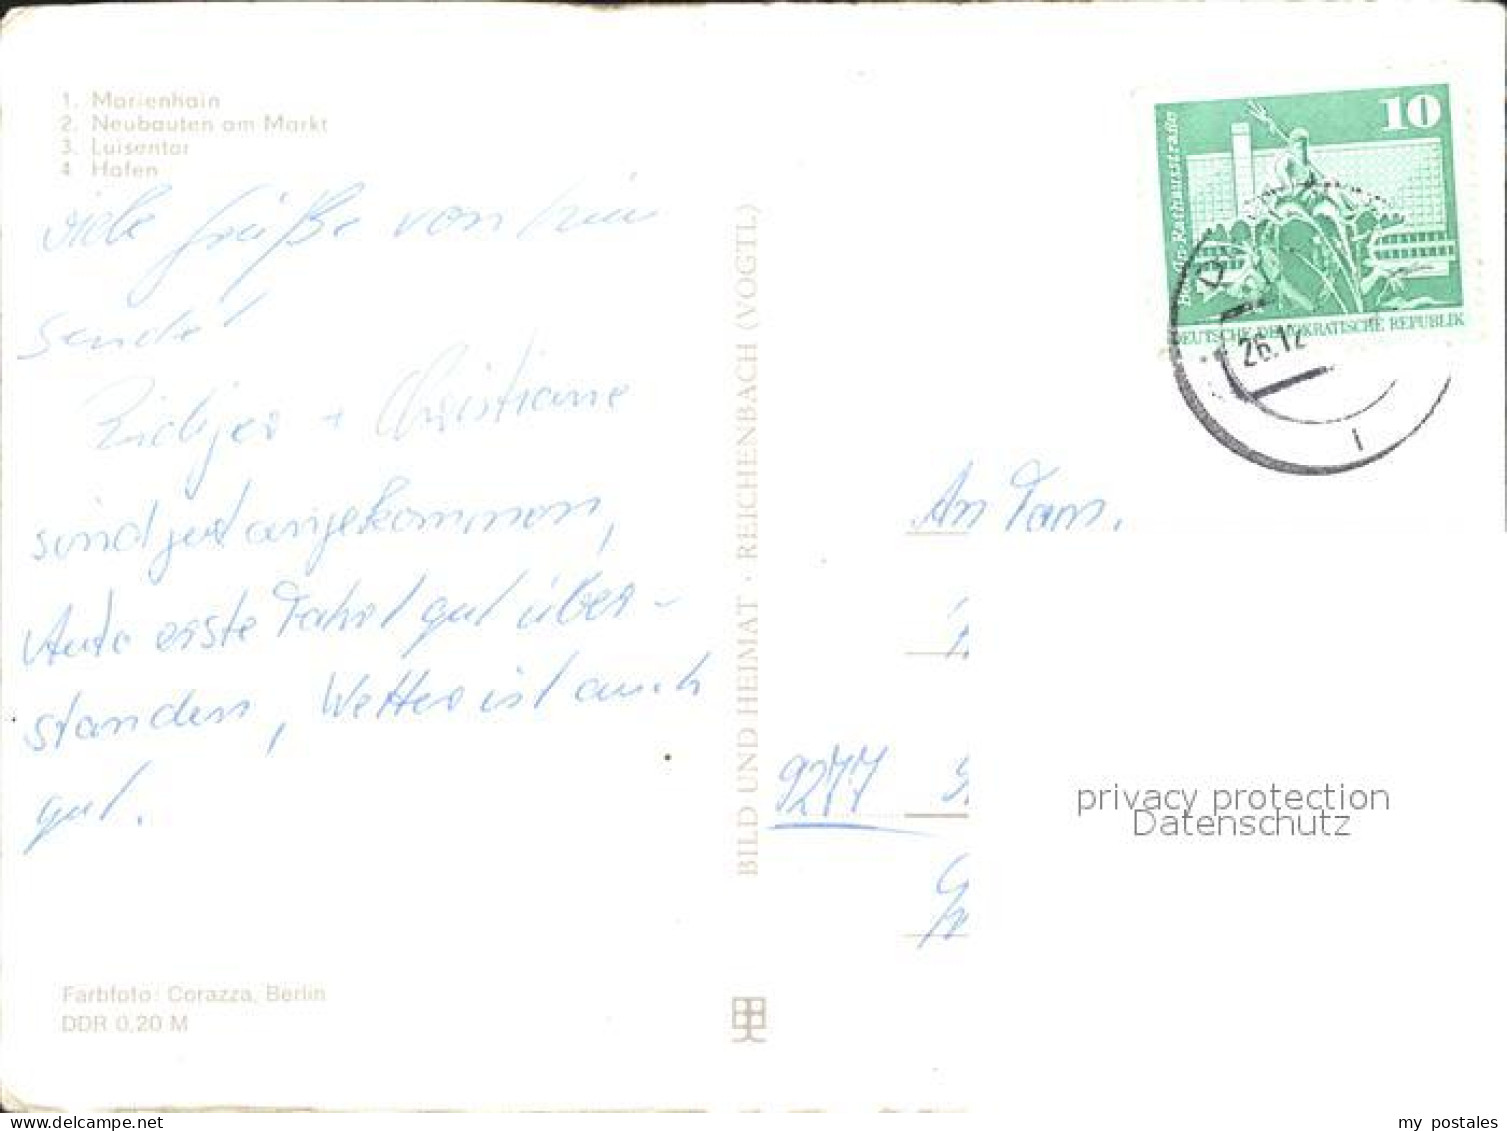 1. Marienhain
2. Neubauten am Markt
3. Luisentor
4. Hafen
viele Grüße von hier
sendet
Rüdiger + Christiane
sind gut angekommen,
Auto erste Fahrt gut über-
standen, Wetter ist auch
gut.
Farbfoto: Corazza, Berlin
DDR 0,20 M
BILD UND HEIMAT · REICHENBACH (VOGTL.)
10
DEUTSCHE DEMOKRATISCHE REPUBLIK
26.12
An Fam.
9277
privacy protection
Datenschutz
my postales